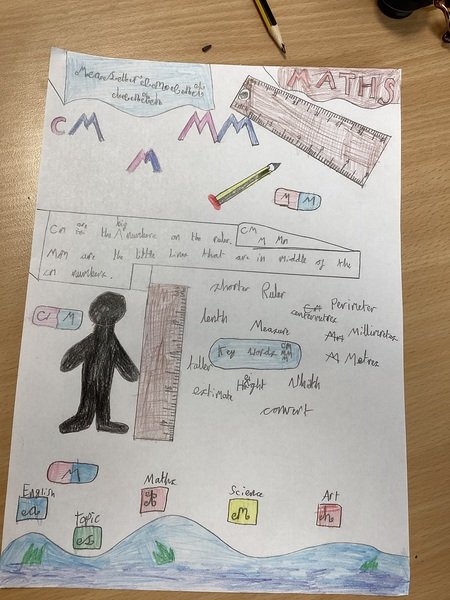 MATHS
CM
MM
M
M M
Cm are the big numbers on the ruler.
CM
M Mm
Mm are the little lines that are in middle of the
cm numbers.
C M
shorter
Ruler
Perimeter
centermetres
lenth
Measure
Millimetres
Key words
CM
MM
M
Metres
taller
Height
Whith
estimate
convert
M
English
Maths
Science
Art
topic